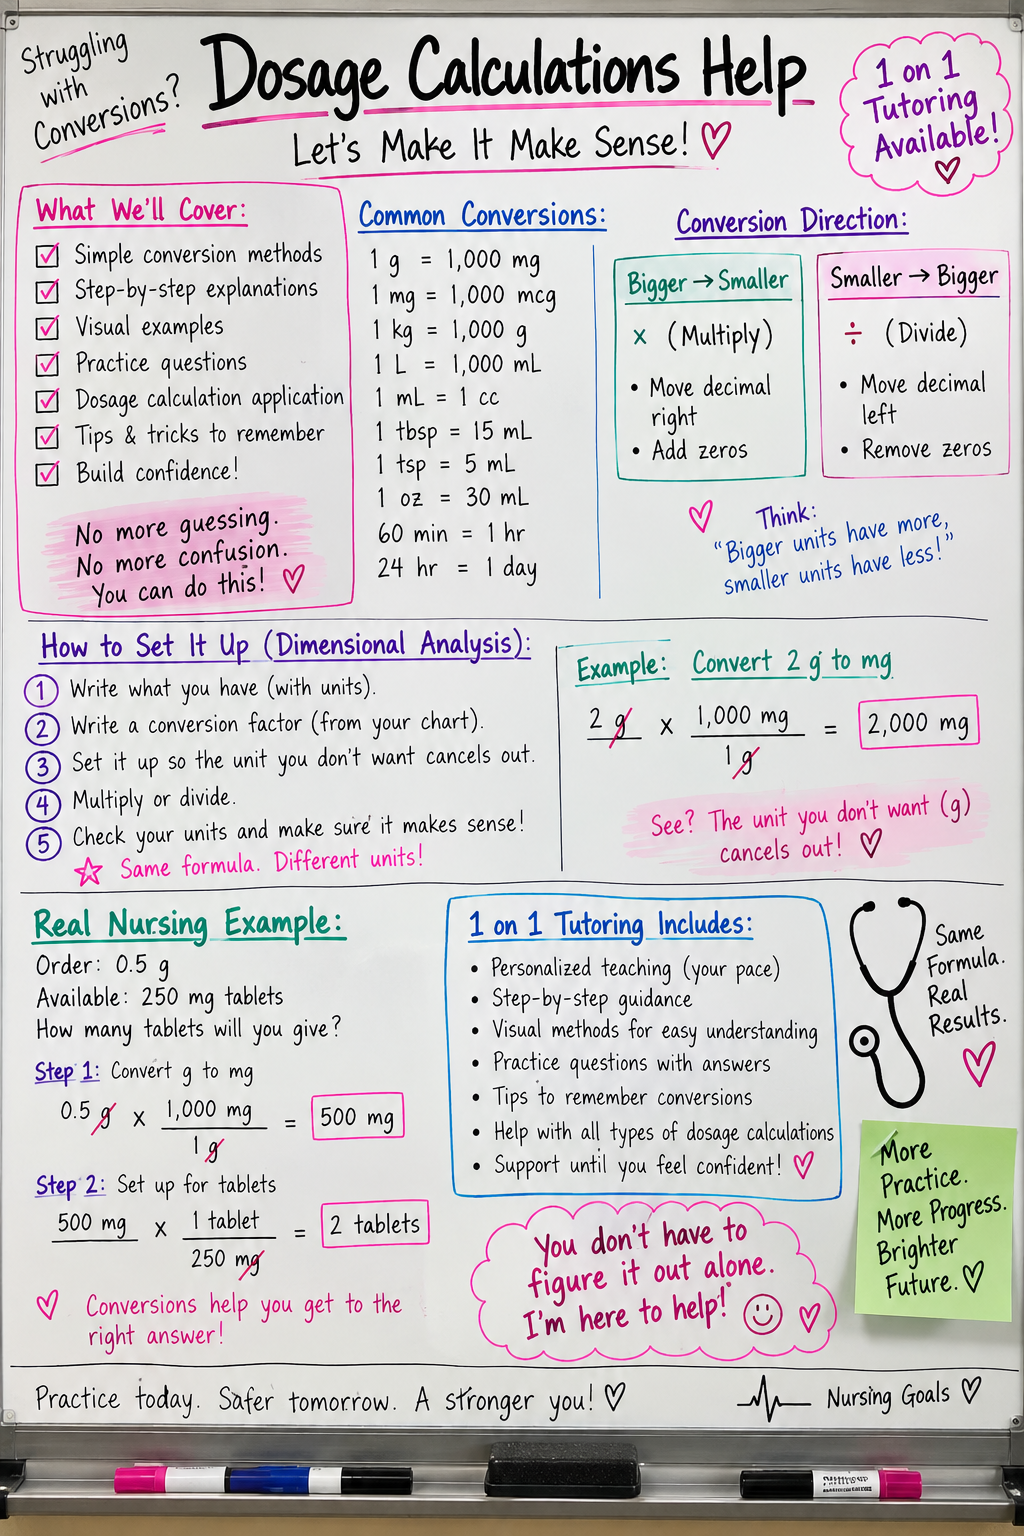 Struggling
with
Conversions?
Dosage Calculations Help
Let's Make It Make Sense!
1 on 1
Tutoring
Available!
What We'll Cover:
Simple conversion methods
Step-by-step explanations
Visual examples
Practice questions
Dosage calculation application
Tips & tricks to remember
Build confidence!
No more guessing.
No more confusion.
You can do this!
Common Conversions:
1 g = 1,000 mg
1 mg = 1,000 mcg
1 kg = 1,000 g
1 L = 1,000 mL
1 mL = 1 cc
1 tbsp = 15 mL
1 tsp = 5 mL
1 oz = 30 mL
60 min = 1 hr
24 hr = 1 day
Conversion Direction:
Bigger → Smaller
× (Multiply)
• Move decimal
right
• Add zeros
Smaller → Bigger
÷ (Divide)
• Move decimal
left
• Remove zeros
Think:
"Bigger units have more,
smaller units have less!"
How to Set It Up (Dimensional Analysis):
1 Write what you have (with units).
2 Write a conversion factor (from your chart).
3 Set it up so the unit you don't want cancels out.
4 Multiply or divide.
5 Check your units and make sure it makes sense!
Same formula. Different units!
Example: Convert 2 g to mg
2 g × 1,000 mg = 2,000 mg
1 g
See? The unit you don't want (g)
cancels out!
Real Nursing Example:
Order: 0.5 g
Available: 250 mg tablets
How many tablets will you give?
Step 1: Convert g to mg
0.5 g × 1,000 mg = 500 mg
1 g
Step 2: Set up for tablets
500 mg × 1 tablet = 2 tablets
250 mg
Conversions help you get to the
right answer!
1 on 1 Tutoring Includes:
• Personalized teaching (your pace)
• Step-by-step guidance
• Visual methods for easy understanding
• Practice questions with answers
• Tips to remember conversions
• Help with all types of dosage calculations
• Support until you feel confident!
Same
Formula.
Real
Results.
You don't have to
figure it out alone.
I'm here to help!
More
Practice.
More Progress.
Brighter
Future.
Practice today. Safer tomorrow. A stronger you!
Nursing Goals